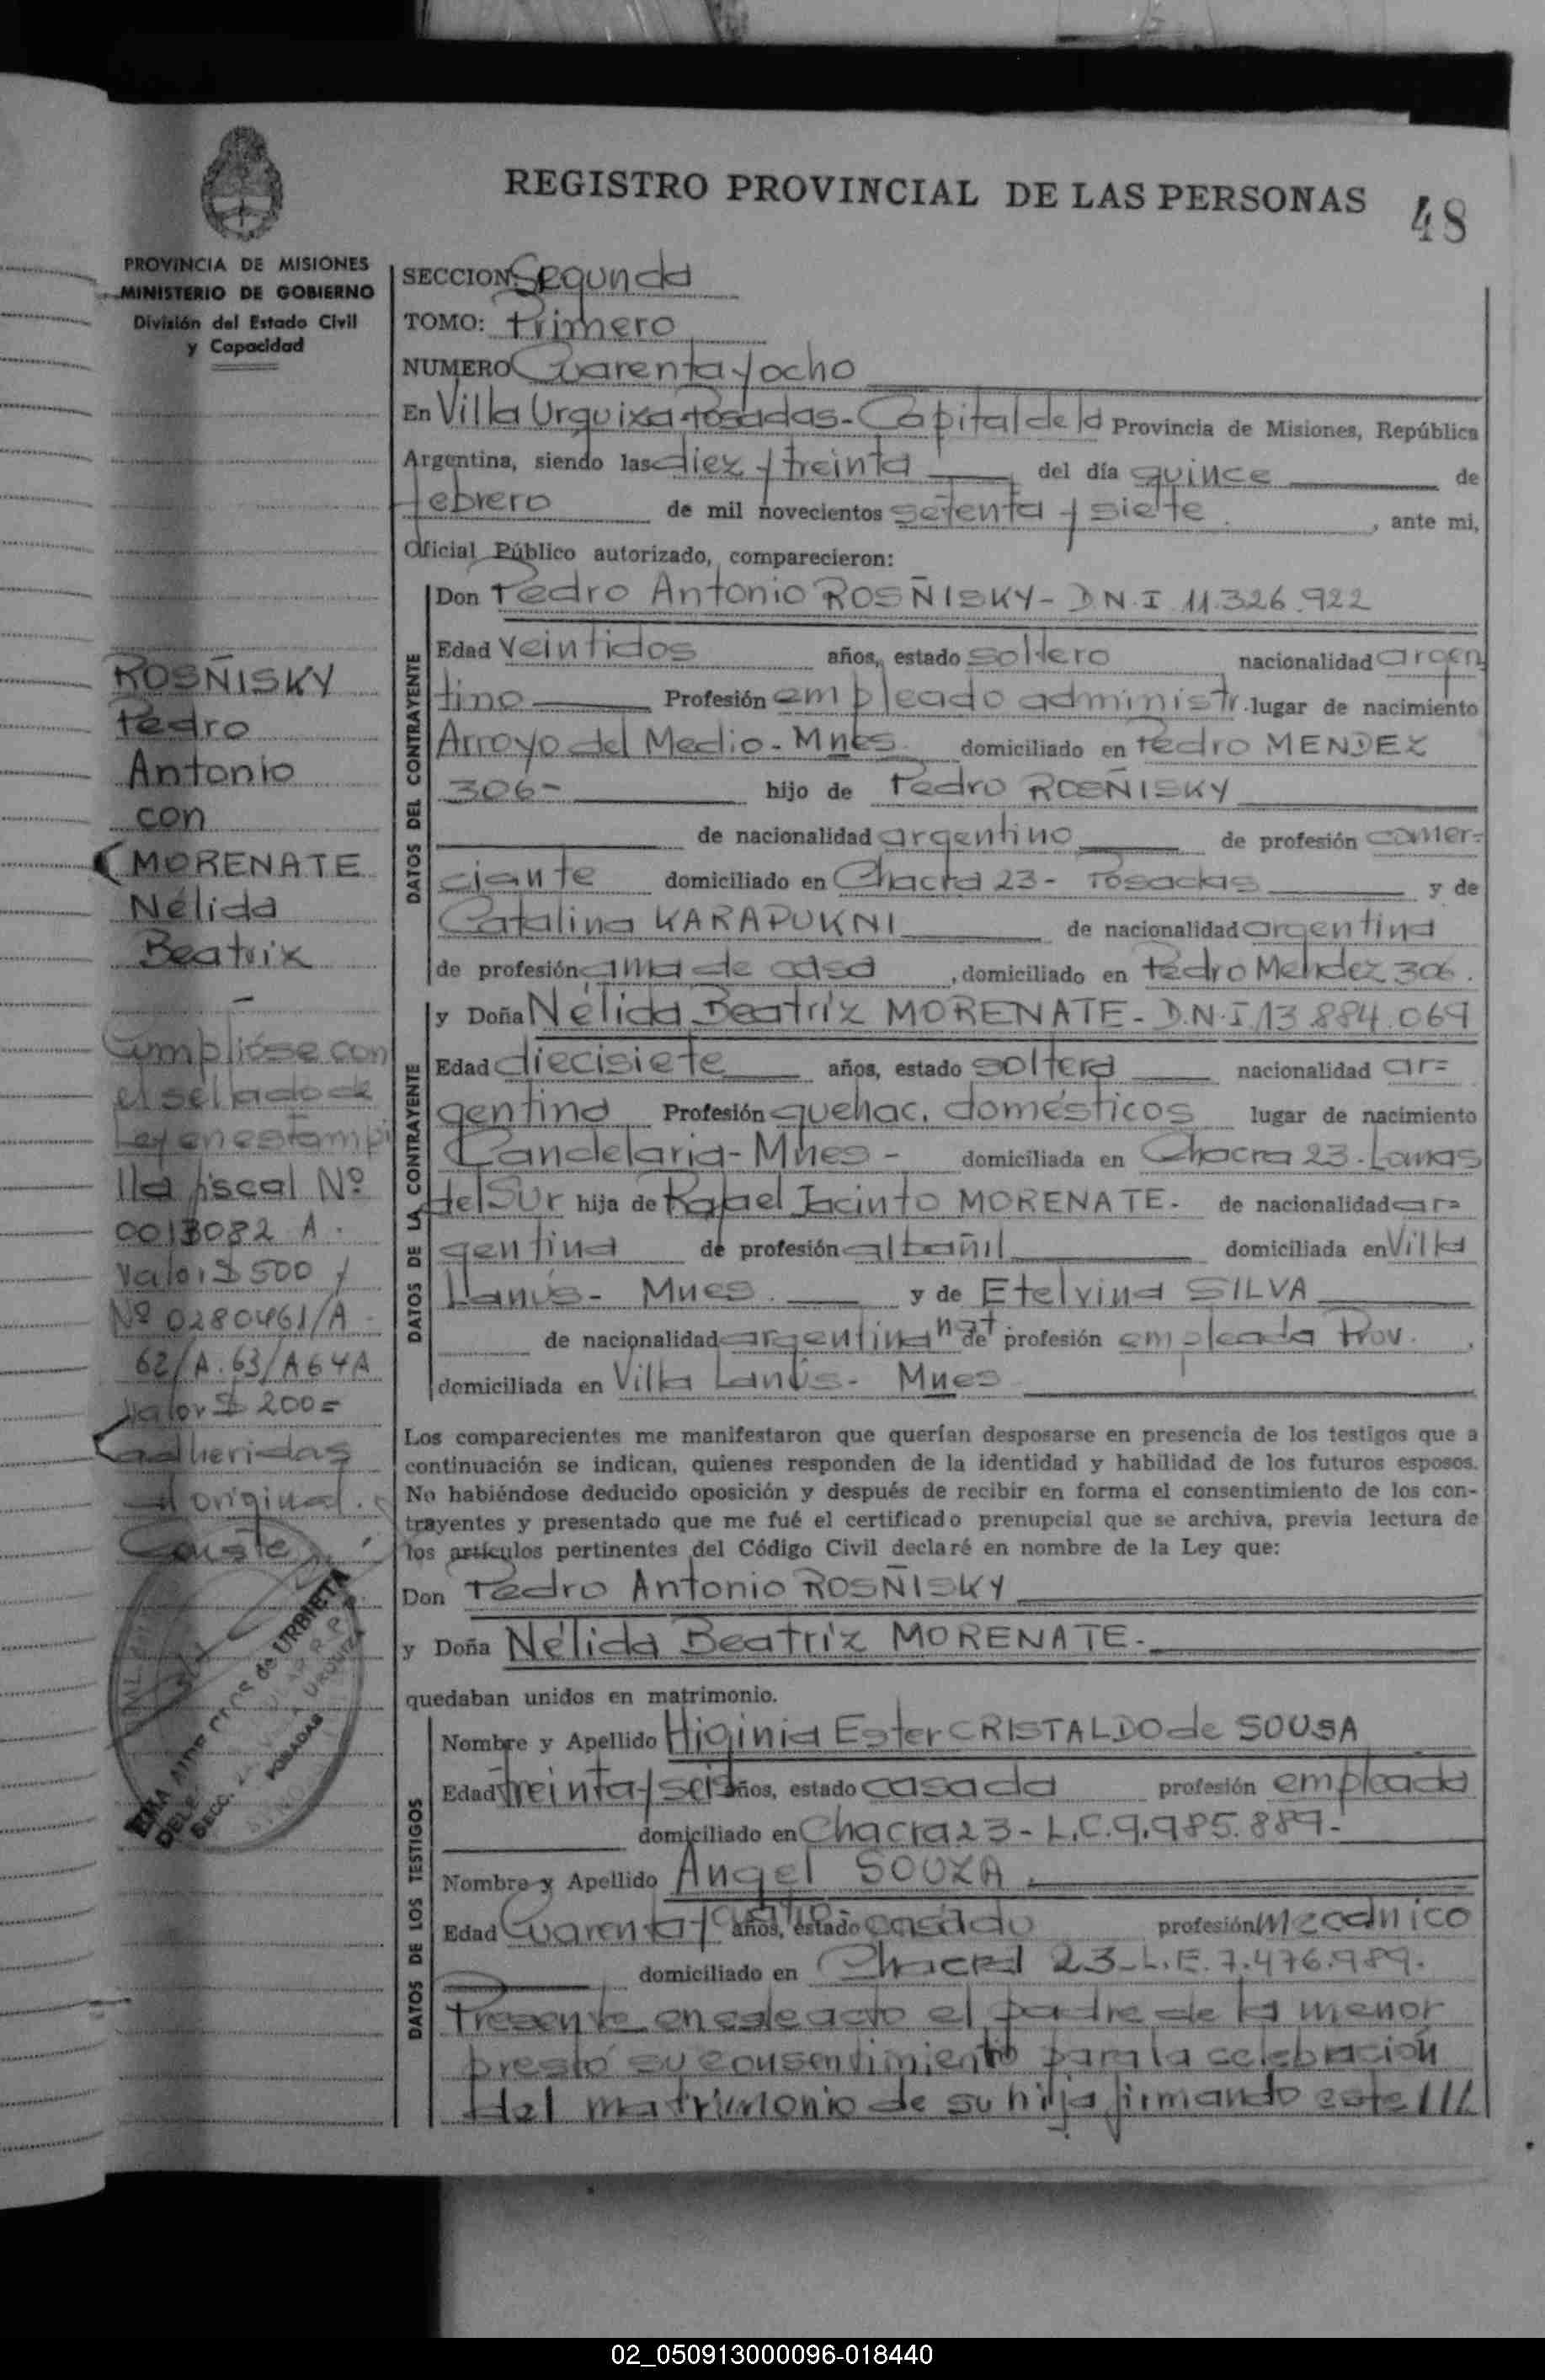 REGISTRO PROVINCIAL DE LAS PERSONAS
48
PROVINCIA DE MISIONES
MINISTERIO DE GOBIERNO
División del Estado Civil
y Capacidad
ROSÑISKY
Pedro
Antonio
con
MORENATE
Nélida
Beatrix
Cumplióse con
el sellado de
Ley en estampi
lla fiscal Nº
0013082 A.
Valor $ 500 y
Nº 0280461/A
62/A.63/A64A
Valor $ 200=
adheridas
al original.
Conste
URBIETA
POSADAS
SECCION: Segunda
TOMO: Primero
NUMERO Cuarenta y ocho
En Villa Urquixa-Posadas-Capital de la Provincia de Misiones, República
Argentina, siendo las diez y treinta del día quince de
febrero de mil novecientos setenta y siete, ante mi,
Oficial Público autorizado, comparecieron:
DATOS DEL CONTRAYENTE
Don Pedro Antonio ROSÑISKY- D.N.I 11.326.922
Edad Veintidos años, estado soltero nacionalidad argen
tino Profesión empleado administr. lugar de nacimiento
Arroyo del Medio-Mnes domiciliado en Pedro MENDEZ
306- hijo de Pedro ROSÑISKY
de nacionalidad argentino de profesión comer-
ciante domiciliado en Chacra 23- Posadas y de
Catalina KARAPUKNI de nacionalidad argentina
de profesión ama de casa, domiciliado en Pedro Mendez 306.
DATOS DE LA CONTRAYENTE
y Doña Nélida Beatriz MORENATE- D.N.I 13.884.069
Edad diecisiete años, estado soltera nacionalidad ar=
gentina Profesión quehac. domésticos lugar de nacimiento
Candelaria-Mnes- domiciliada en Chacra 23-Lomas
del Sur hija de Rafael Jacinto MORENATE- de nacionalidad ar=
gentina de profesión albañil domiciliada en Villa
Lanús- Mnes. y de Etelvina SILVA
de nacionalidad argentina nat de profesión empleada Prov.
domiciliada en Villa Lanús- Mnes
Los comparecientes me manifestaron que querían desposarse en presencia de los testigos que a
continuación se indican, quienes responden de la identidad y habilidad de los futuros esposos.
No habiéndose deducido oposición y después de recibir en forma el consentimiento de los con-
trayentes y presentado que me fué el certificado prenupcial que se archiva, previa lectura de
los artículos pertinentes del Código Civil declaré en nombre de la Ley que:
Don Pedro Antonio ROSÑISKY
y Doña Nélida Beatriz MORENATE-
quedaban unidos en matrimonio.
DATOS DE LOS TESTIGOS
Nombre y Apellido Higinia Ester CRISTALDO de SOUSA
Edad treinta y seis años, estado casada profesión empleada
domiciliado en Chacra 23- L.C.9.985.889-
Nombre y Apellido Angel SOUZA
Edad Cuarenta y cuatro años, estado casado profesión Mecánico
domiciliado en Chacra 23-L.E.7.476.989.
Presente en este acto el padre de la menor
prestó su consentimiento para la celebración
del matrimonio de su hija firmando este ///
02_050913000096-018440